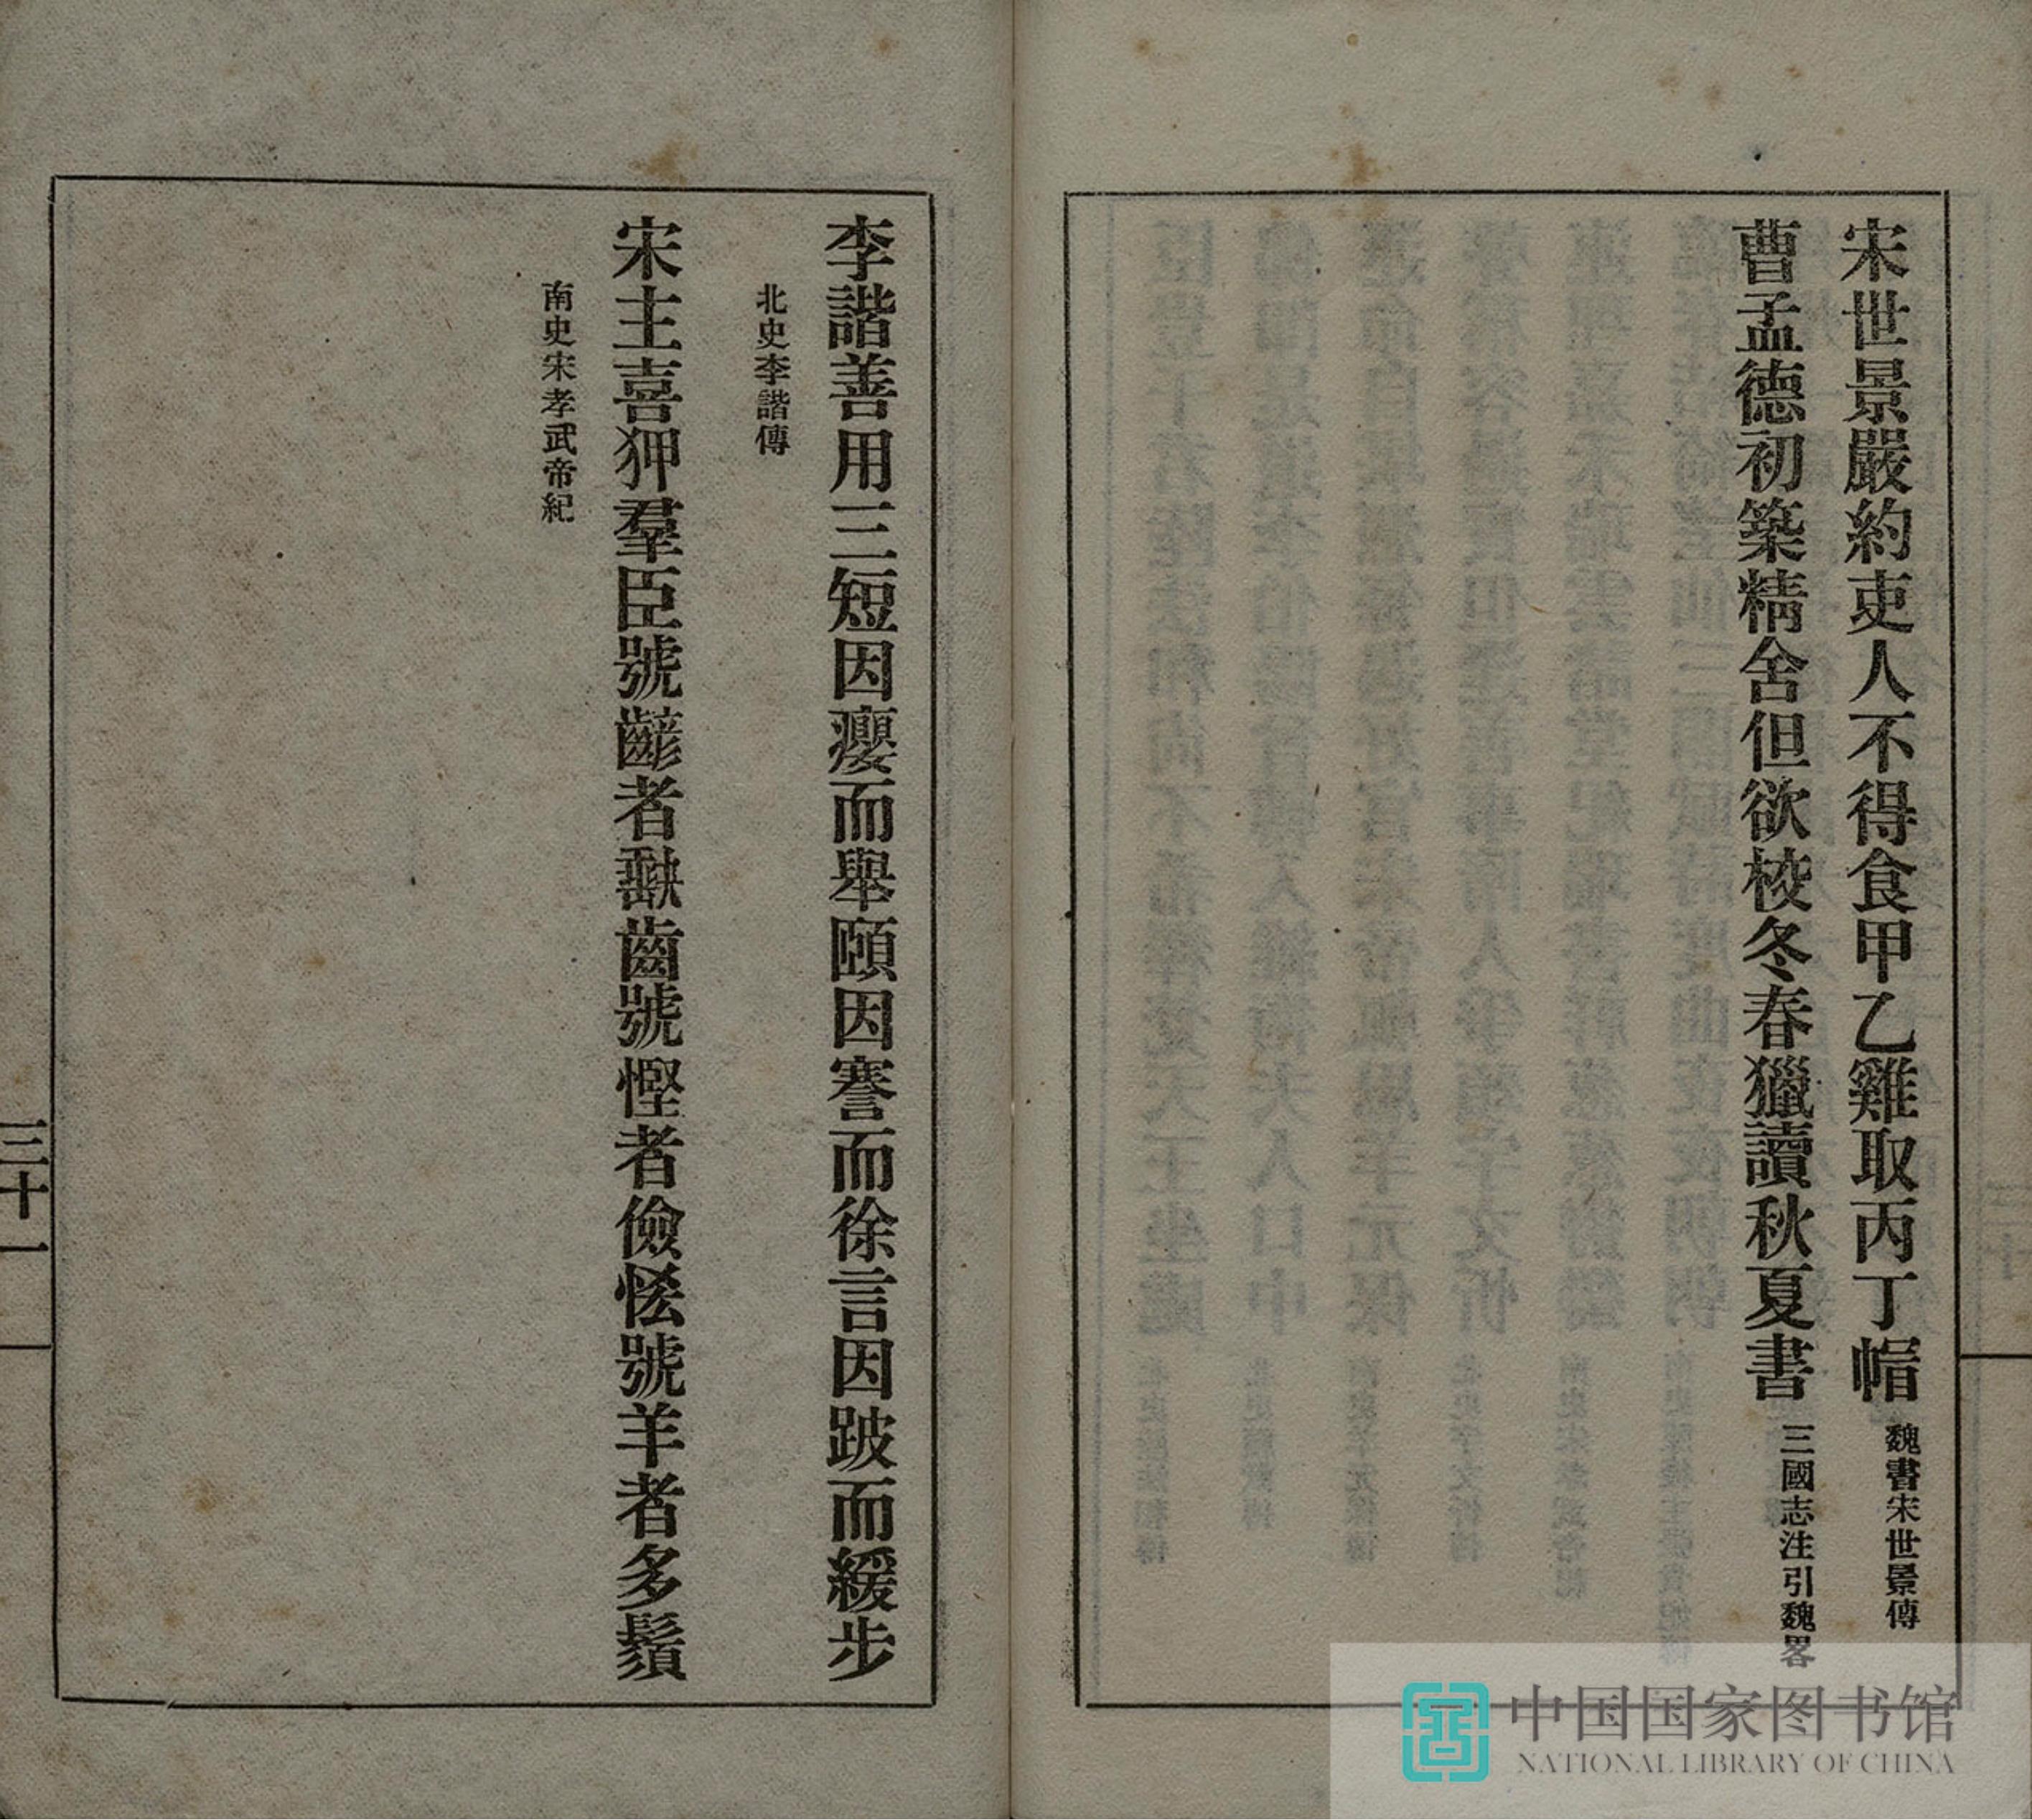 宋世景嚴約吏人不得食甲乙雞取丙丁帽
魏書宋世景傳
曹孟德初築精舍但欲校冬春獵讀秋夏書
三國志注引魏畧
李諧善用三短因癭而舉頤因謇而徐言因跛而緩步
北史李諧傳
宋主喜狎羣臣號齴者齾齒號慳者儉恡號羊者多鬚
南史宋孝武帝紀
三十一
中国国家图书馆
NATIONAL LIBRARY OF CHINA